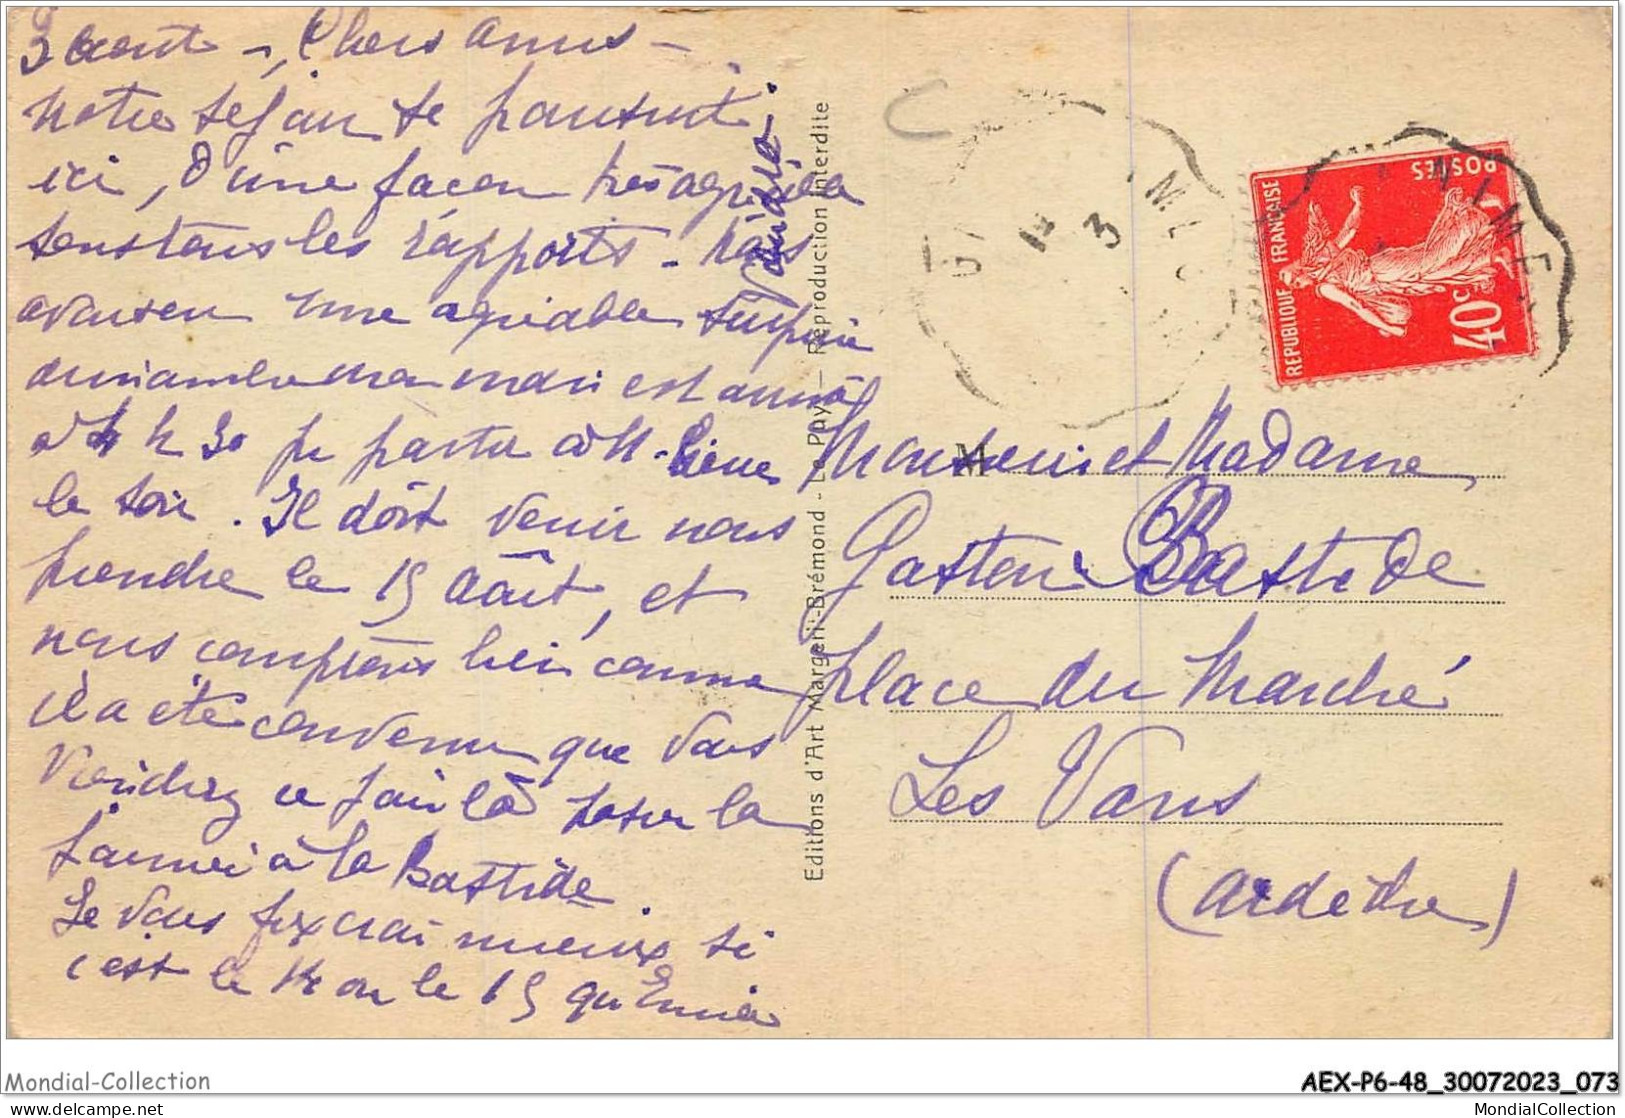 3 Aout - Chers Amis -
Notre séjour se poursuit
ici, d'une façon très agréable
sous tous les rapports. Nous
avons eu une agréable surprise
dimanche mon mari est arrivé
à 4 h 30 pr partir à 11 heures
le soir. Il doit venir nous
prendre le 15 Août, et
nous comptons bien comme
il a été convenu que vous
viendrez ce jour là passer la
journée à la Bastide.
Je vous fixerai mieux si
c'est le 14 ou le 15 qu'Emile
viendra.
Editions d'Art Margerit-Brémond - Le Puy - Reproduction Interdite
M
Monsieur et Madame
Gaston Bastide
place du Marché
Les Vans
(Ardèche)
REPUBLIQUE FRANÇAISE
POSTES
40c
NIMES
Mondial-Collection
AEX-P6-48_30072023_073
delcampe.net
MondialCollection